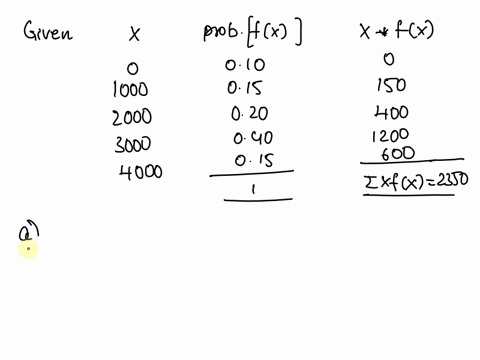 Given X prob. [f(x)] X * f(x)
0 0.10 0
1000 0.15 150
2000 0.20 400
3000 0.40 1200
4000 0.15 600
1 Σxf(x)=2350
a)